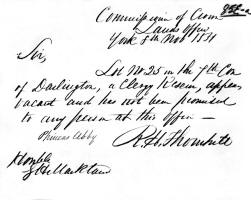 Commissioner of Crown
Lands Office
York 8th Novr 1831
Sir,
Lot No 25 in the 7th Con
of Darlington, a Clergy Reserve, appears
vacant and has not been promised
to any person at this office —
Phineas Abby